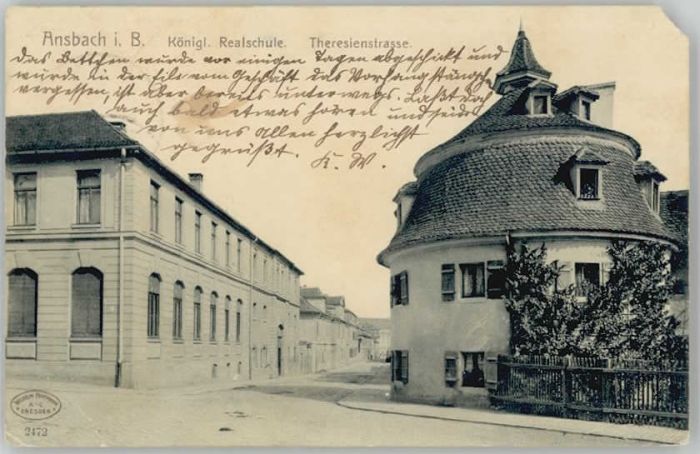 Ansbach i. B. Königl. Realschule. Theresienstrasse.
Das Bettchen wurde vor einigen Tagen abgeschickt und
würde in der Eile vom Geschäft das Vorhangstängchen
vergessen, ist aber bereits unterwegs. Laßt doch
auch bald etwas hören und seid
von uns Allen herzlichst
gegrüßt.
K. W.
Wilhelm Hoffmann
A.-G.
DRESDEN
2472